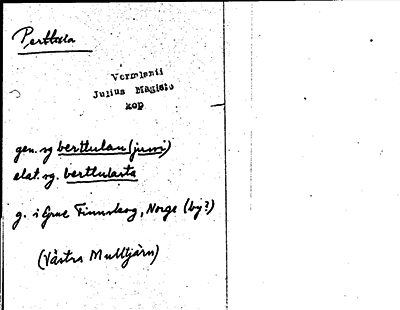 Perttula
Vermlanti
Julius Mägiste
kop
gen. sg berttulan (juuri)
elat. sg. berttulasta
g. i Grue Finnskog, Norge (by?)
(Västra Multtjärn)